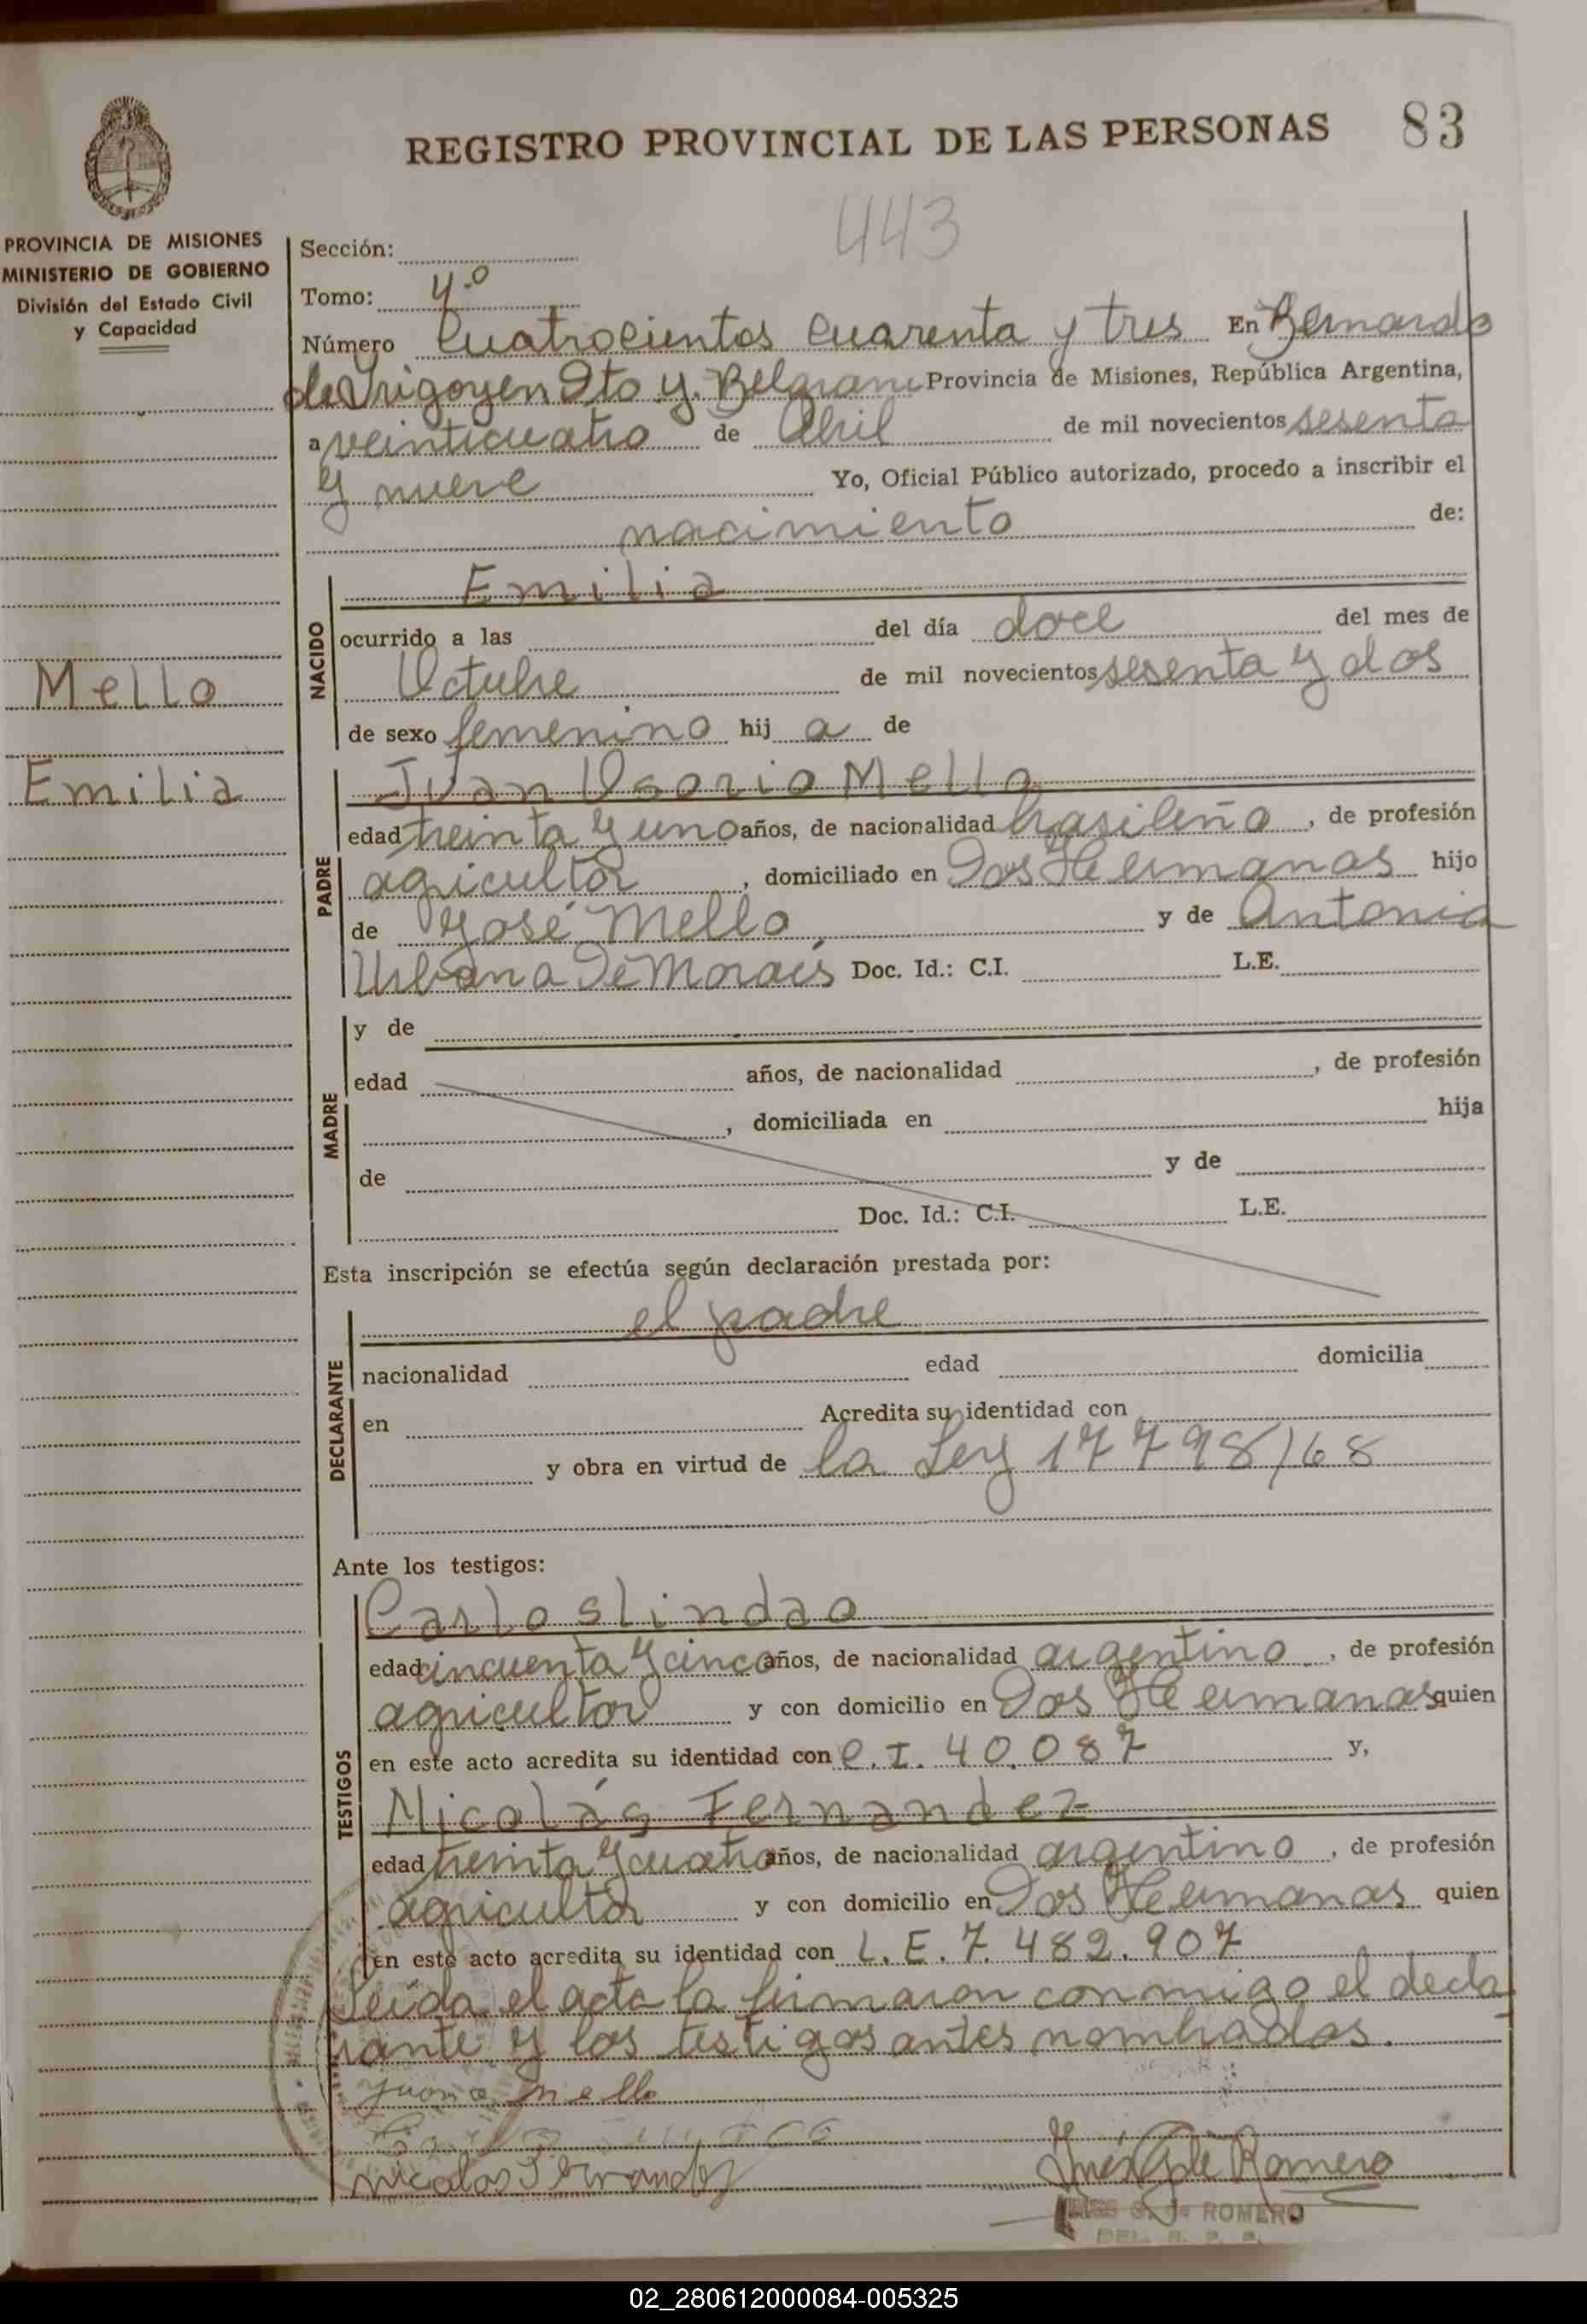 REGISTRO PROVINCIAL DE LAS PERSONAS 83
443
PROVINCIA DE MISIONES
MINISTERIO DE GOBIERNO
División del Estado Civil
y Capacidad
Sección:
Tomo: 4º
Número Cuatrocientos cuarenta y tres En Bernardo
de Irigoyen Dto y. Belgrano Provincia de Misiones, República Argentina,
a veinticuatro de Abril de mil novecientos sesenta
y nueve Yo, Oficial Público autorizado, procedo a inscribir el
nacimiento de:
NACIDO
Emilia
ocurrido a las del día doce del mes de
Mello
Octubre de mil novecientos sesenta y dos
de sexo femenino hij a de
Emilia
PADRE
Juan Osorio Mello
edad treinta y uno años, de nacionalidad brasileño, de profesión
agricultor, domiciliado en Dos Hermanas hijo
de José Mello y de Antonia
Urbana De Morais Doc. Id.: C.I. L.E.
MADRE
y de
edad años, de nacionalidad , de profesión
, domiciliada en hija
de y de
Doc. Id.: C.I. L.E.
Esta inscripción se efectúa según declaración prestada por:
DECLARANTE
el padre
nacionalidad edad domicilia
en Acredita su identidad con
y obra en virtud de la Ley 17798/68
Ante los testigos:
TESTIGOS
Carlos Lindao
edad cincuenta y cinco años, de nacionalidad argentino, de profesión
agricultor y con domicilio en Dos Hermanas quien
en este acto acredita su identidad con C.I. 40.087 y,
Nicolás Fernandez
edad treinta y cuatro años, de nacionalidad argentino, de profesión
agricultor y con domicilio en Dos Hermanas quien
en este acto acredita su identidad con L.E. 7.482.907
Leída el acta la firmaron conmigo el decla
rante y los testigos antes nombrados.
Mello
Nicolas
Inés G de Romero
G. de ROMERO
DEL. R. P. P.
02_280612000084-005325